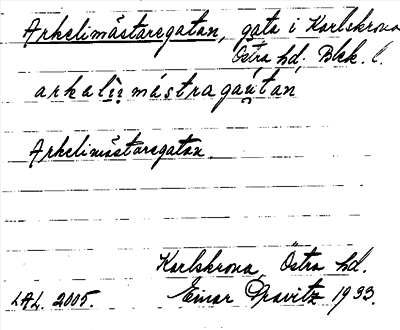 Arkelimästaregatan, gata i Karlskrona
Östra hd. Blek. l.
arkalìi mástragàtàn
Arkelimästaregatan
Karlskrona, Östra hd.
LAL. 2005. Einar Gravitz 1933.